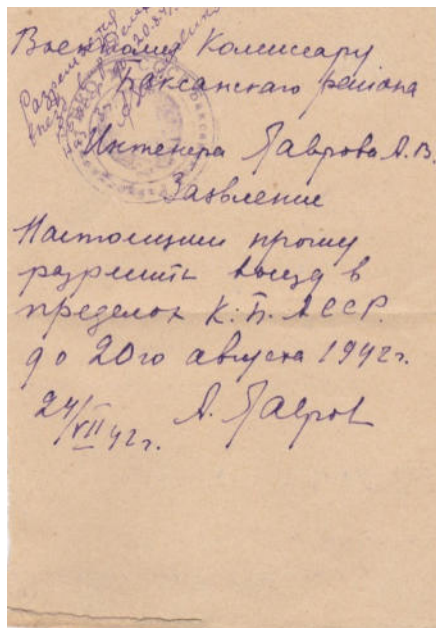 Разрешается
выезд в пределах
до 20.8.42
Военному Комиссару
Баксанского района
Инженера Гаврова А.В.
Заявление
Настоящим прошу
разрешить выезд в
пределах К.Б. АССР.
до 20го августа 1942г.
24/VII 42г. А. Гавров